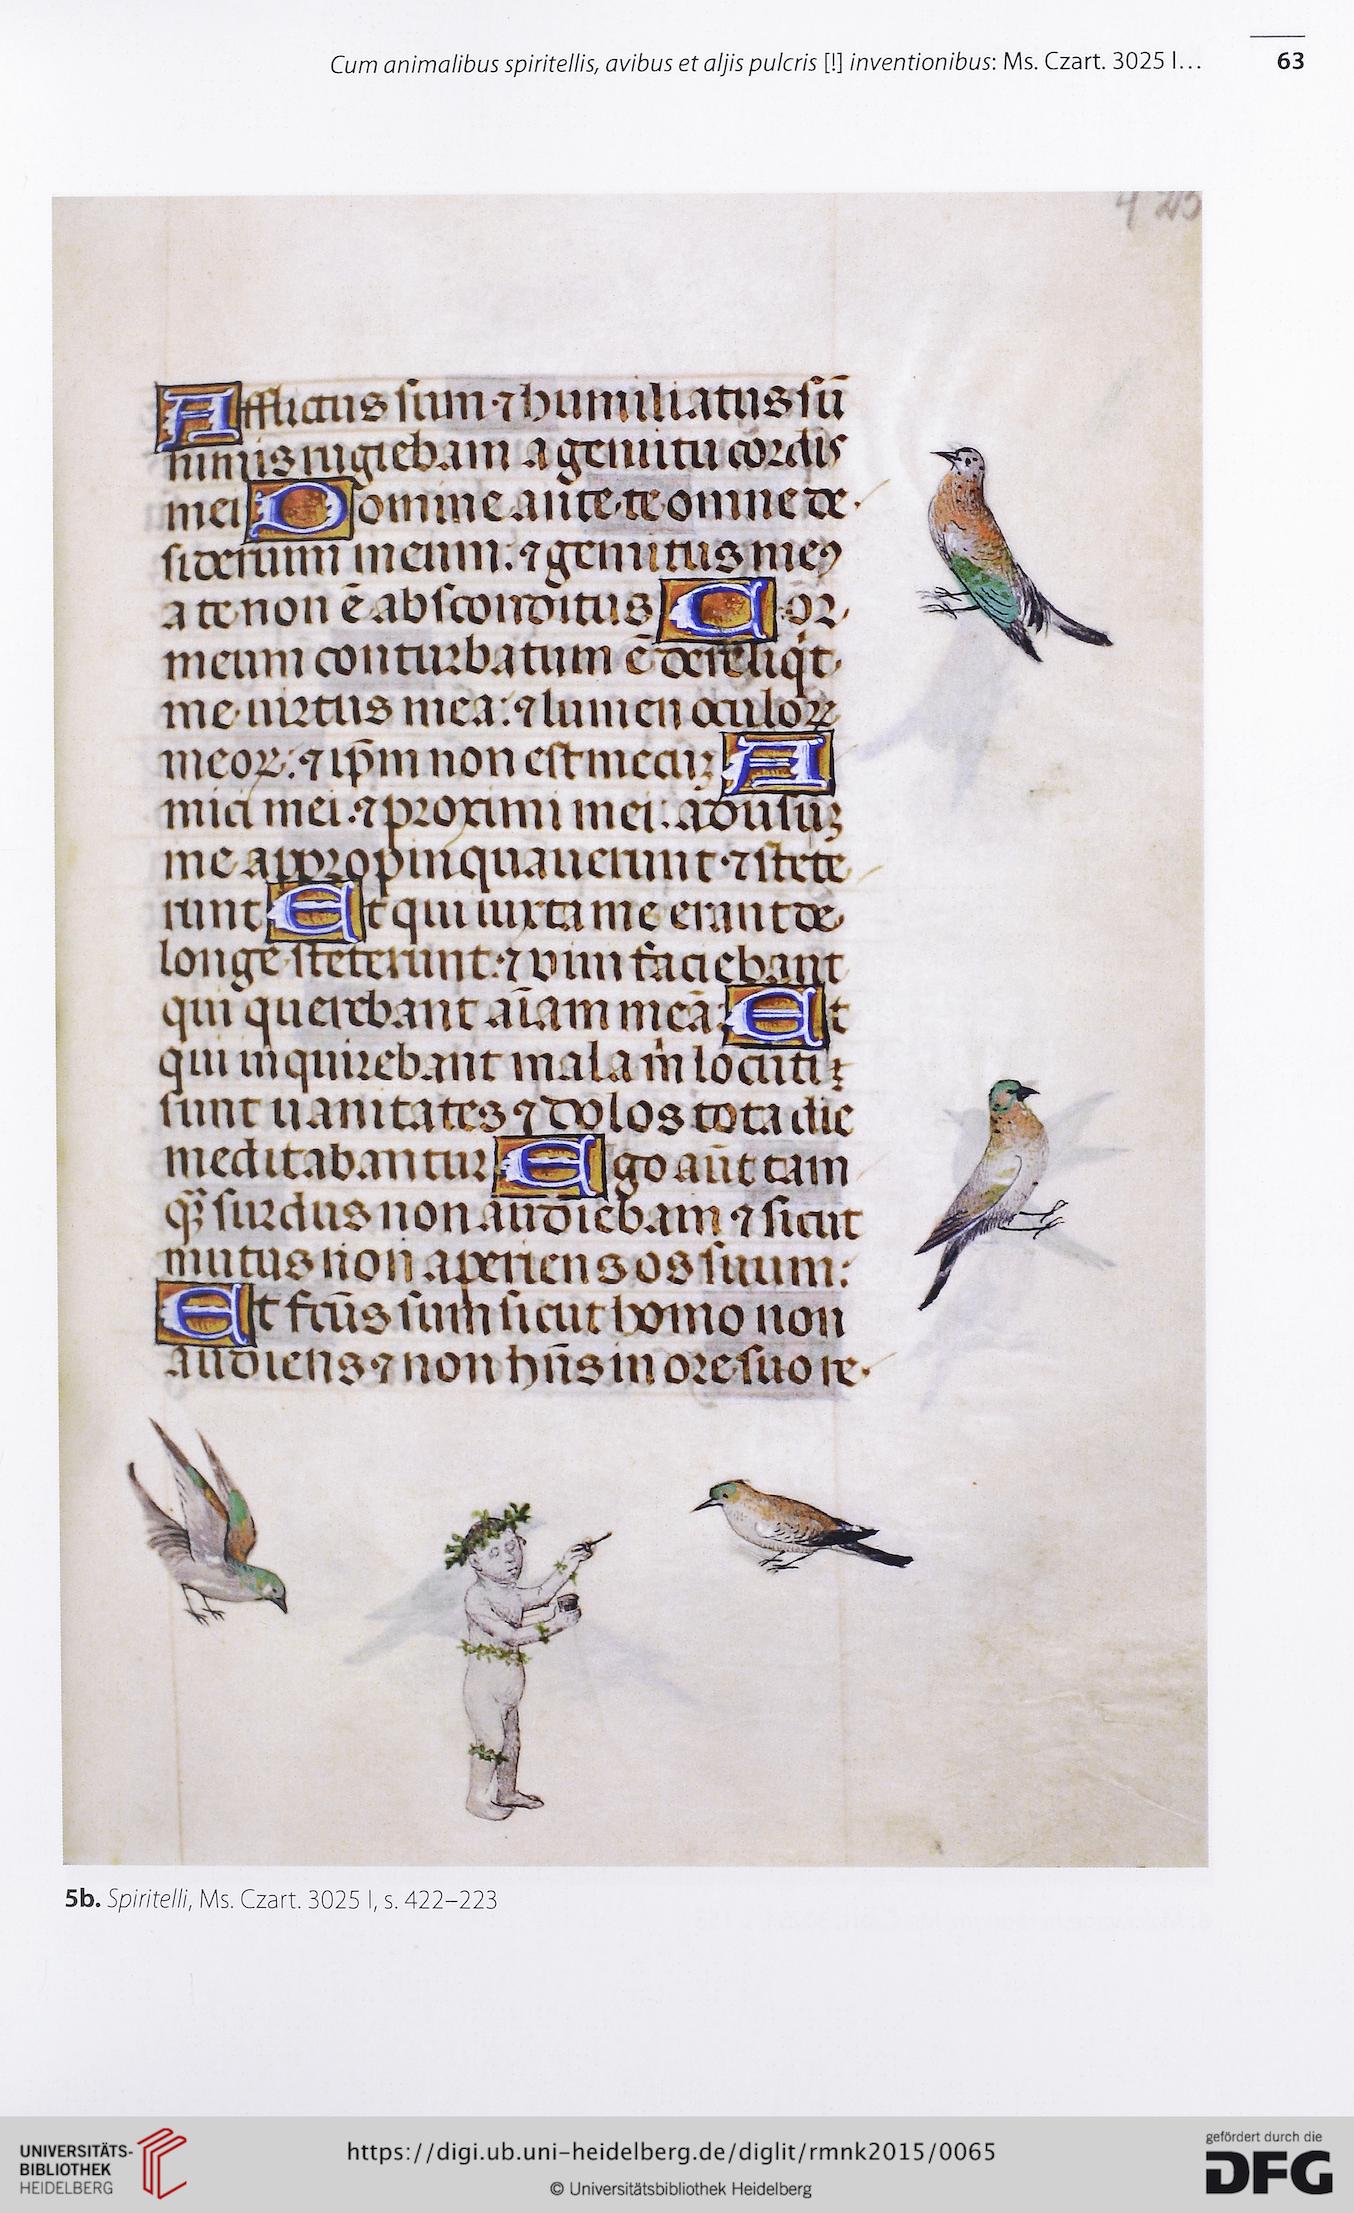 Cum animalibus spiritellis, avibus et aljis pulcris [!] inventionibus: Ms. Czart. 3025 I… 63
Afflictus sum ⁊ humiliatus sū
nimis rugiebam a gemitu cordis
mei Domine ante te omne de
siderium meum: ⁊ gemitus meꝯ
a te non ē absconditus Cor
meum conturbatum ē dereliqͥt
me uirtus mea: ⁊ lumen oculoꝝ
meoꝝ: ⁊ ip̄m non est mecuꝫ A
mici mei ⁊ proximi mei: aduersuꝫ
me appropinquauerunt ⁊ stete
runt Et qui iuxta me erant de
longe steterunt: ⁊ uim faciebant
qui querebant aīam meā: Et
qui inquirebant mala m̄ locuti
sunt uanitates ⁊ dolos tota die
meditabantur Ego aūt tam
qꝫ surdus non audiebam ⁊ sicut
mutus non aperiens os suum:
Et fcūs sum sicut homo non
audiens ⁊ non hn̄s in ore suo re
5b. Spiritelli, Ms. Czart. 3025 I, s. 422–223
UNIVERSITÄTS-
BIBLIOTHEK
HEIDELBERG
https://digi.ub.uni-heidelberg.de/diglit/rmnk2015/0065
© Universitätsbibliothek Heidelberg
gefördert durch die
DFG